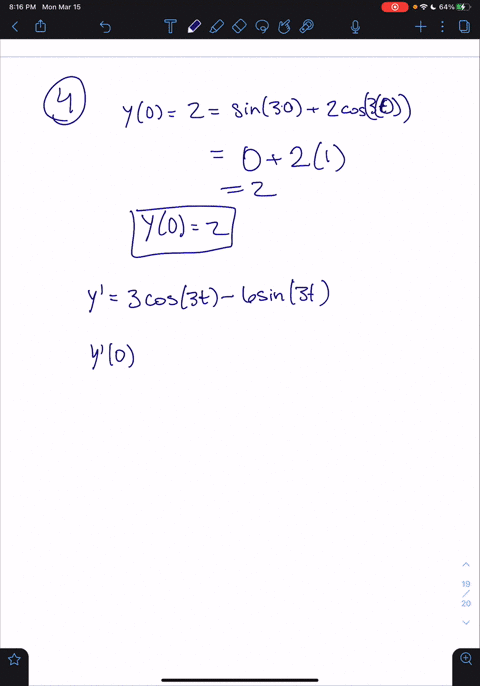 8:16 PM Mon Mar 15
64%
4
y(0) = 2 = sin(3·0) + 2cos(3(0))
= 0 + 2(1)
= 2
y(0) = 2
y' = 3cos(3t) - 6sin(3t)
y'(0)
19
/
20